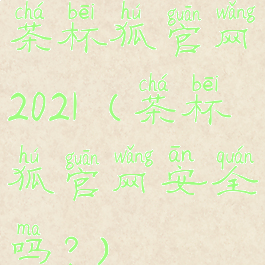 chá bēi hú guān wǎng
茶杯狐官网
chá bēi
2021（茶杯
hú guān wǎng ān quán
狐官网安全
ma
吗?)